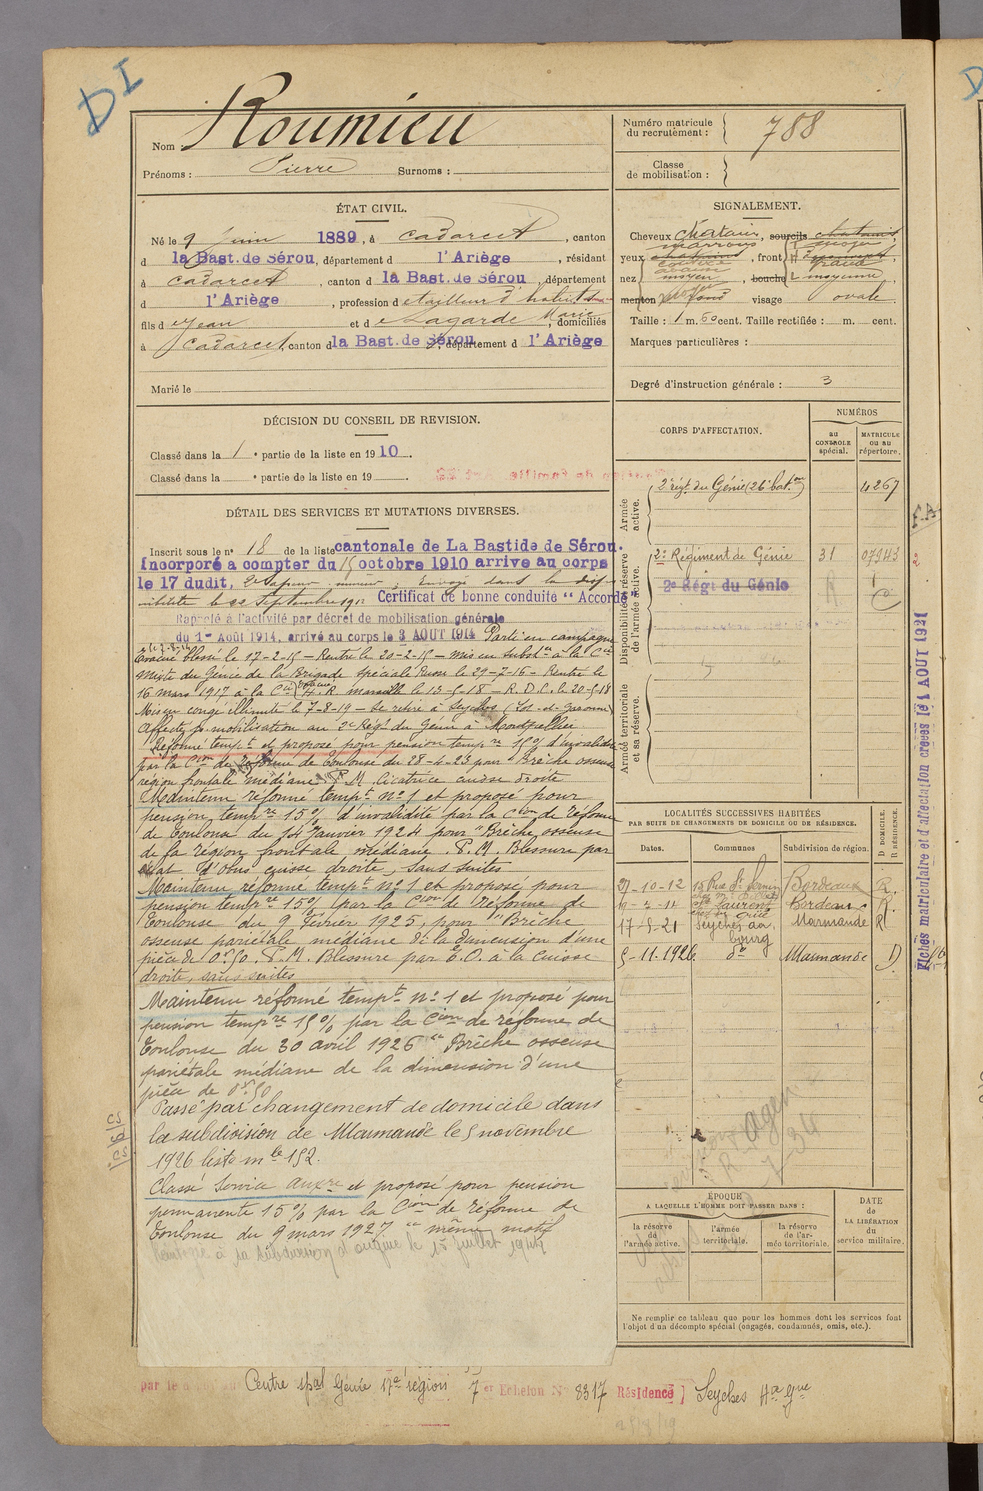 DI
Nom Roumieu
Prénoms : Pierre Surnoms :
Numéro matricule du recrutement : 788
Classe de mobilisation :
ÉTAT CIVIL.
Né le 9 juin 1889, à Cadarcet, canton
d la Bast. de Sérou, département d l'Ariège, résidant
à Cadarcet, canton d la Bast. de Sérou, département
d l'Ariège, profession d tailleur d'habits
fils d Jean et d Lagarde Marie, domiciliés
à Cadarcet, canton d la Bast. de Sérou, département d l'Ariège
Marié le
SIGNALEMENT.
Cheveux châtain, sourcils châtains
yeux marrons, front moyen
nez moyen, bouche moyenne
menton rond visage ovale
Taille : 1 m. 60 cent. Taille rectifiée : m. cent.
Marques particulières :
Degré d'instruction générale : 3
DÉCISION DU CONSEIL DE REVISION.
Classé dans la 1e partie de la liste en 1910.
Classé dans la e partie de la liste en 19 .
CORPS D'AFFECTATION.
NUMÉROS
au CONTROLE spécial.
MATRICULE ou au répertoire.
Armée active.
2e régt du Génie (26e baton) 4267
Disponibilité et réserve de l'armée active.
2e Régiment de Génie 31 07943
2e Régt du Génie
Armée territoriale et sa réserve.
DÉTAIL DES SERVICES ET MUTATIONS DIVERSES.
Inscrit sous le n° 18 de la liste cantonale de La Bastide de Sérou.
Incorporé a compter du 15 octobre 1910 arrive au corps
le 17 dudit, 2e sapeur mineur, Envoyé dans la dispo
nibilité le 22 Septembre 1912 Certificat de bonne conduite "Accordé"
Rappelé à l'activité par décret de mobilisation générale
du 1er Août 1914, arrivé au corps le 3 AOUT 1914 Parti en campagne
Evacué blessé le 17-2-15 — Rentré le 20-2-15 — Mis en subsce à la Cie
Mixte du Génie de la Brigade spéciale Russe le 29-7-16 - Rentré le
16 mars 1917 à la Cie H. R. marseille le 13-5-18 — R. D. C. le 20-5-18
Mis en congé illimité le 7-8-19 — Se retire à Seyches (Lot-et-Garonne)
Affecté p. mobilisation au 2e Régt du Génie à Montpellier
Réformé tempt et proposé pour pension tempre 15% d'invalidité
par la Cion de réforme de Toulouse du 28-4-23 pour Brèche osseuse
région frontale médiane P.M. Cicatrice cuisse droite
Maintenu réformé tempt n° 1 et proposé pour
pension tempre 15% d'invalidité par la Cion de Réforme
de Toulouse du 14 Janvier 1924 pour "Brèche osseuse
de la région frontale médiane. P.M. Blessure par
éclat d'obus cuisse droite, sans suites
Maintenu réformé tempt n° 1 et proposé pour
pension tempre 15% par la Cion de réforme de
Toulouse du 9 Février 1925, pour "Brèche
osseuse pariétale médiane de la dimension d'une
pièce de 0f50. P.M. Blessure par E.O. à la cuisse
droite, sans suites
Maintenu réformé tempt n° 1 et proposé pour
pension tempre 15% par la Cion de réforme de
Toulouse du 30 avril 1926 "Brèche osseuse
pariétale médiane de la dimension d'une
pièce de 0f50
Passé par changement de domicile dans
la subdivision de Marmande le 5 novembre
1926 liste mle 152.
Classé Service auxre et proposé pour pension
permanente 15% par la Cion de réforme de
Toulouse du 9 mars 1927 "même motif
LOCALITÉS SUCCESSIVES HABITÉES
PAR SUITE DE CHANGEMENTS DE DOMICILE OU DE RÉSIDENCE.
Dates. Communes Subdivision de région. D DOMICILE. R RÉSIDENCE.
21-10-12 Bordeaux R.
St Laurent Bordeaux R
17-8-21 Seyches au bourg Marmande R
5-11-1926 do Marmande D
Agen
ÉPOQUE
A LAQUELLE L'HOMME DOIT PASSER DANS :
la réserve de l'armée active.
l'armée territoriale.
la réserve de l'armée territoriale.
DATE de LA LIBÉRATION du service militaire.
Ne remplir ce tableau que pour les hommes dont les services font
l'objet d'un décompte spécial (engagés, condamnés, omis, etc.).
Fiches matriculaire et d'affectation créées le 11 AOUT 1921
Centre spal Génie 17e région 7 er Echelon N° 8317 Résidence Seyches Hte Gne